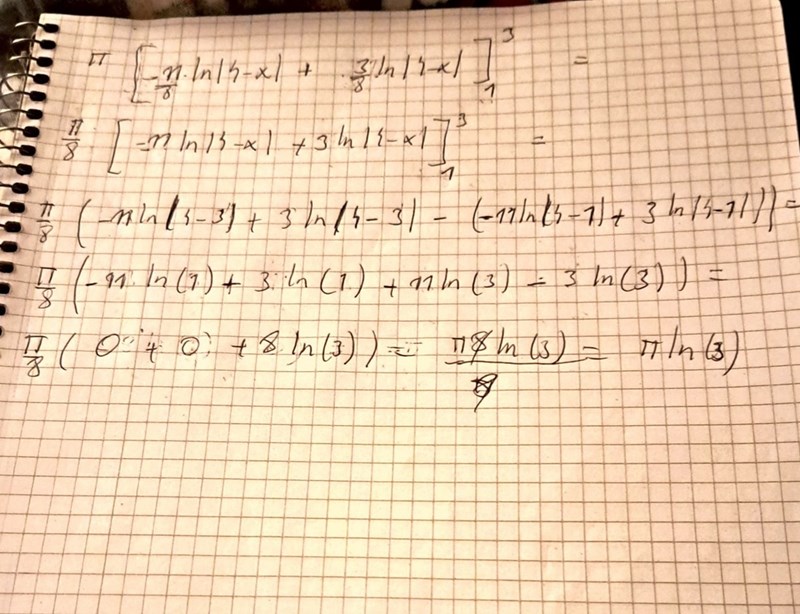 π [-11/8 ln|4-x| + 3/8 ln|4-x|]₁³ =
π/8 [-11 ln|4-x| + 3 ln|4-x|]₁³ =
π/8 (-11 ln|4-3| + 3 ln|4-3| - (-11 ln|4-1| + 3 ln|4-1|)) =
π/8 (-11 ln(1) + 3 ln(1) + 11 ln(3) - 3 ln(3)) =
π/8 (0 + 0 + 8 ln(3)) = π8 ln(3)/8 = π ln(3)